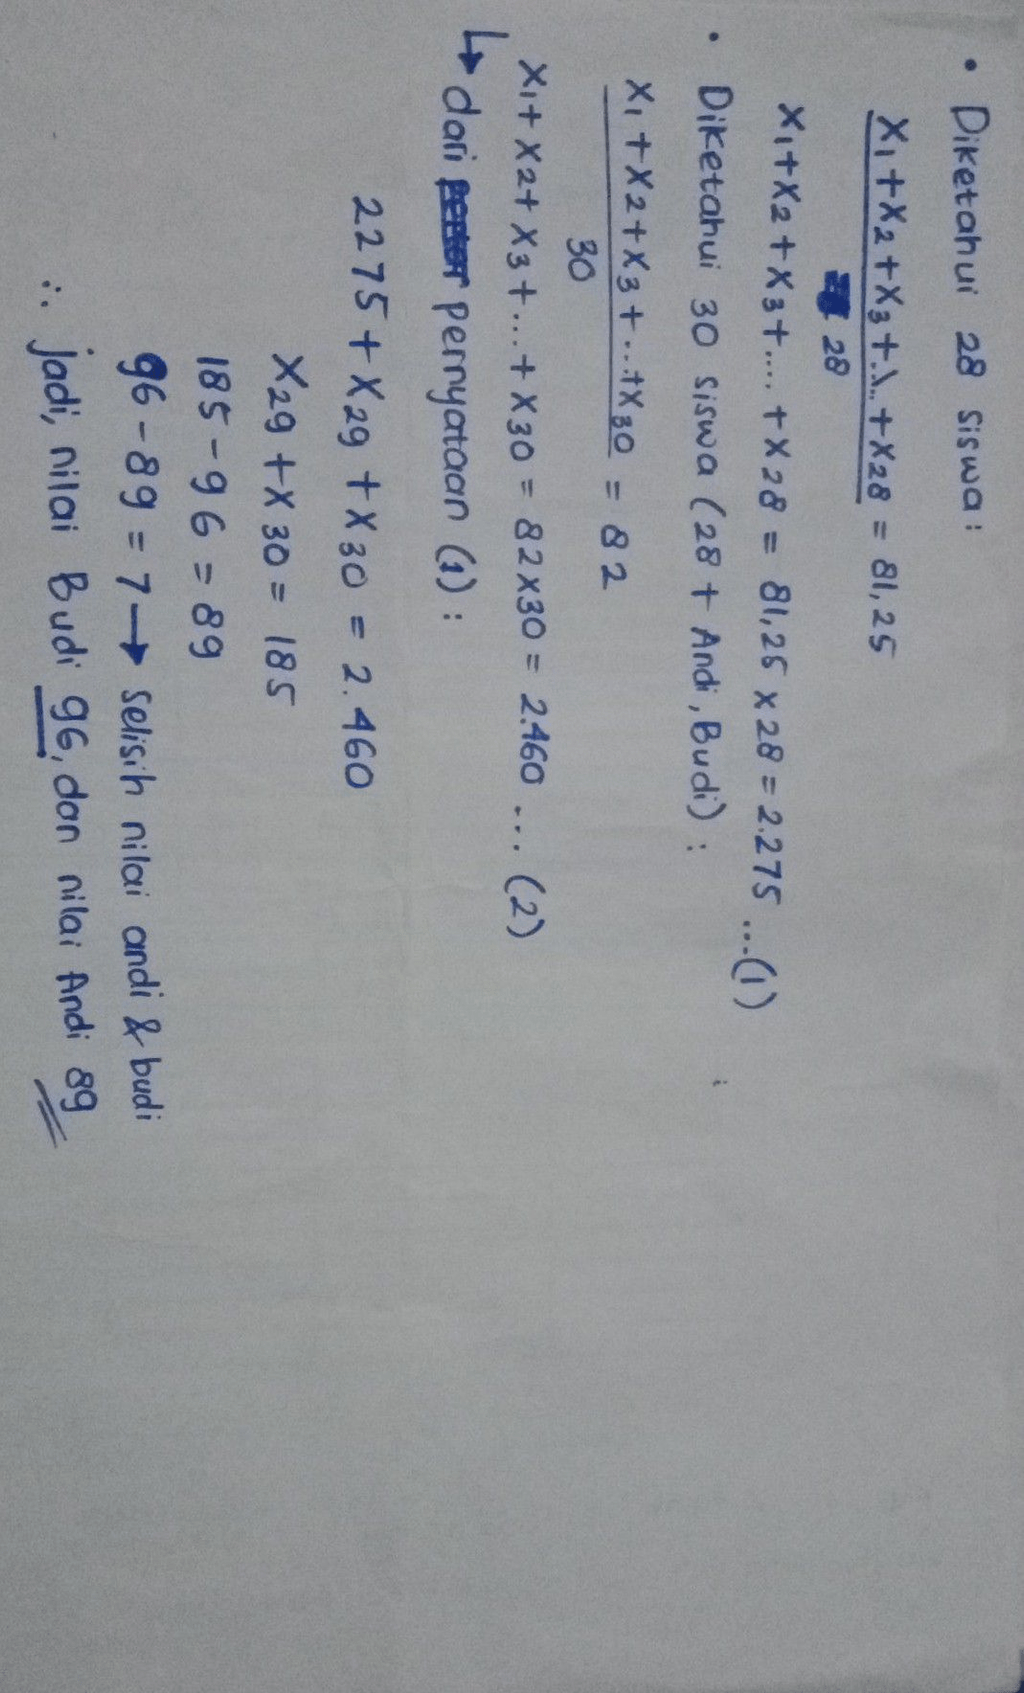 • Diketahui 28 siswa:
x₁+x₂+x₃+...+x₂₈ = 81,25
28
x₁+x₂+x₃+....+x₂₈ = 81,25 x 28 = 2.275 ...(1)
• Diketahui 30 siswa (28 + Andi, Budi) :
x₁+x₂+x₃+...+x₃₀ = 82
30
x₁+x₂+x₃+...+x₃₀ = 82x30 = 2.460 ... (2)
↳ dari pernyataan (1) :
2275 + x₂₉ + x₃₀ = 2.460
x₂₉ + x₃₀ = 185
185 - 96 = 89
96 - 89 = 7 → selisih nilai andi & budi
∴ jadi, nilai Budi 96, dan nilai Andi 89